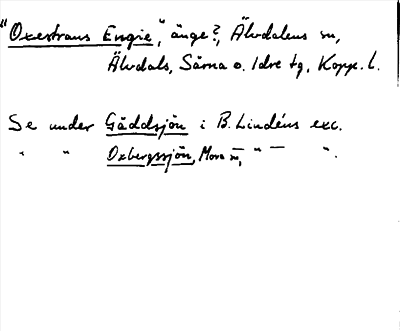 "Oxertrans Engie", änge?, Älvdalens sn,
Älvdals, Särna o. Idre tg, Kopp. l.
Se under Gäddsjön i B. Lindéns exc.
" " Oxbergssjön, Mora sn, " — ".